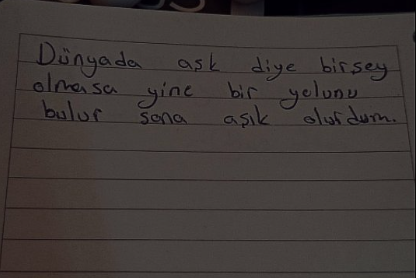 Dünyada ask diye birsey
olmasa yine bir yolunu
bulur sana aşık olurdum.